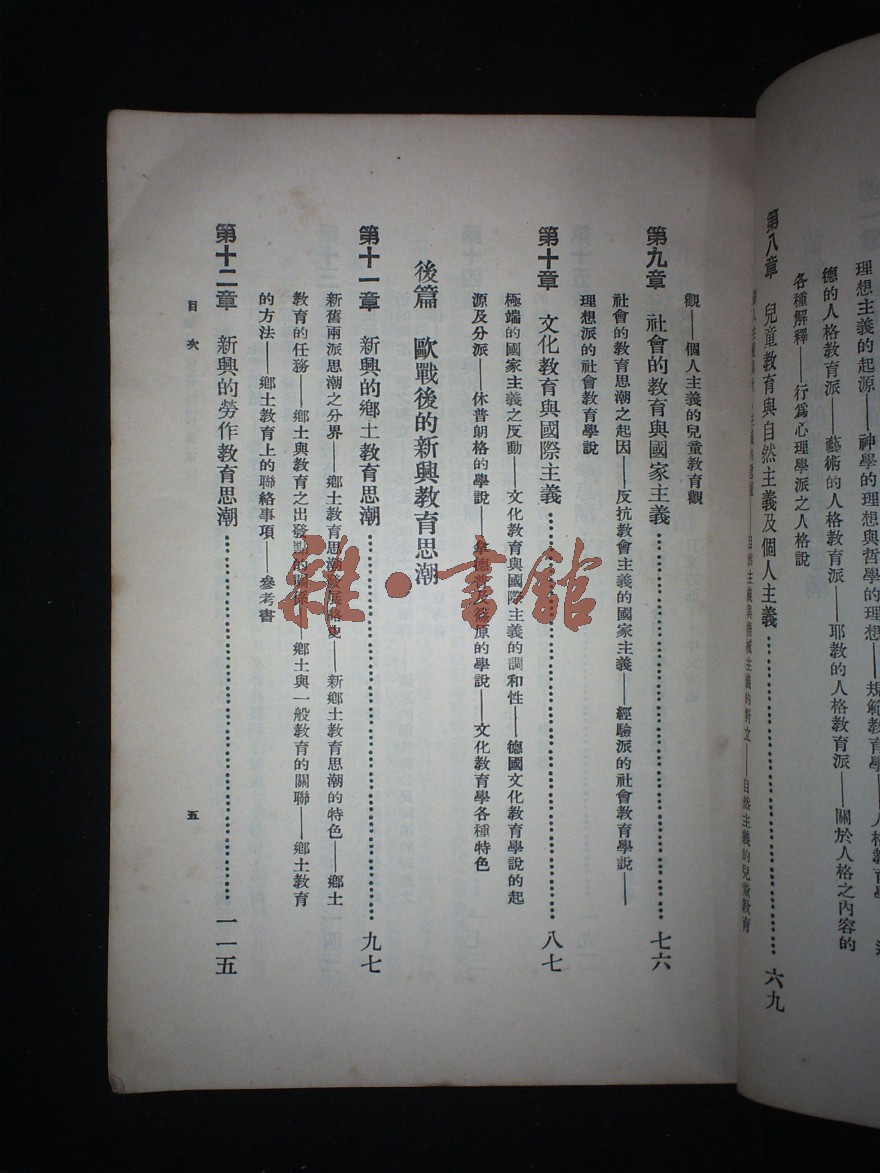 理想主義的起源——神學的理想與哲學的理想——規範教育學——人格教育學
德的人格教育派——藝術的人格教育派——耶教的人格教育派——關於人格之內容的
各種解釋——行爲心理學派之人格說
第八章 兒童教育與自然主義及個人主義……六九
自然主義與機械主義的對立——自然主義的兒童教育
觀——個人主義的兒童教育觀
第九章 社會的教育與國家主義……七六
社會的教育思潮之起因——反抗教會主義的國家主義——經驗派的社會教育學說——
理想派的社會教育學說
第十章 文化教育與國際主義……八七
極端的國家主義之反動——文化教育與國際主義的調和性——德國文化教育學說的起
源及分派——休普朗格的學說——拿德普及篠原的學說——文化教育學各種特色
後篇 歐戰後的新興教育思潮
第十一章 新興的鄉土教育思潮……九七
新舊兩派思潮之分界——鄉土教育思潮發展略史——新鄉土教育思潮的特色——鄉土
教育的任務——鄉土與教育之出發點的關係——鄉土與一般教育的關聯——鄉土教育
的方法——鄉土教育上的聯絡事項——參考書
第十二章 新興的勞作教育思潮……一一五
目次
五
雜·書館